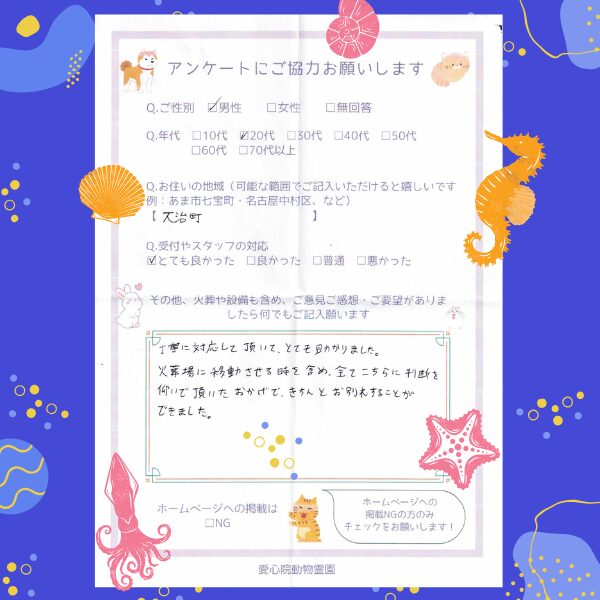 アンケートにご協力お願いします
Q.ご性別 ☑男性 □女性 □無回答
Q.年代 □10代 ☑20代 □30代 □40代 □50代
□60代 □70代以上
Q.お住いの地域（可能な範囲でご記入いただけると嬉しいです
例：あま市七宝町・名古屋中村区、など）
【 大治町 】
Q.受付やスタッフの対応
☑とても良かった □良かった □普通 □悪かった
その他、火葬や設備も含め、ご意見ご感想・ご要望がありま
したら何でもご記入願います
丁寧に対応して頂いて、とても助かりました。
火葬場に移動させる時を含め、全てこちらに判断を
伺いで頂いたおかげで、きちんとお別れすることが
できました。
ホームページへの掲載は
□NG
ホームページへの
掲載NGの方のみ
チェックをお願いします！
愛心院動物霊園